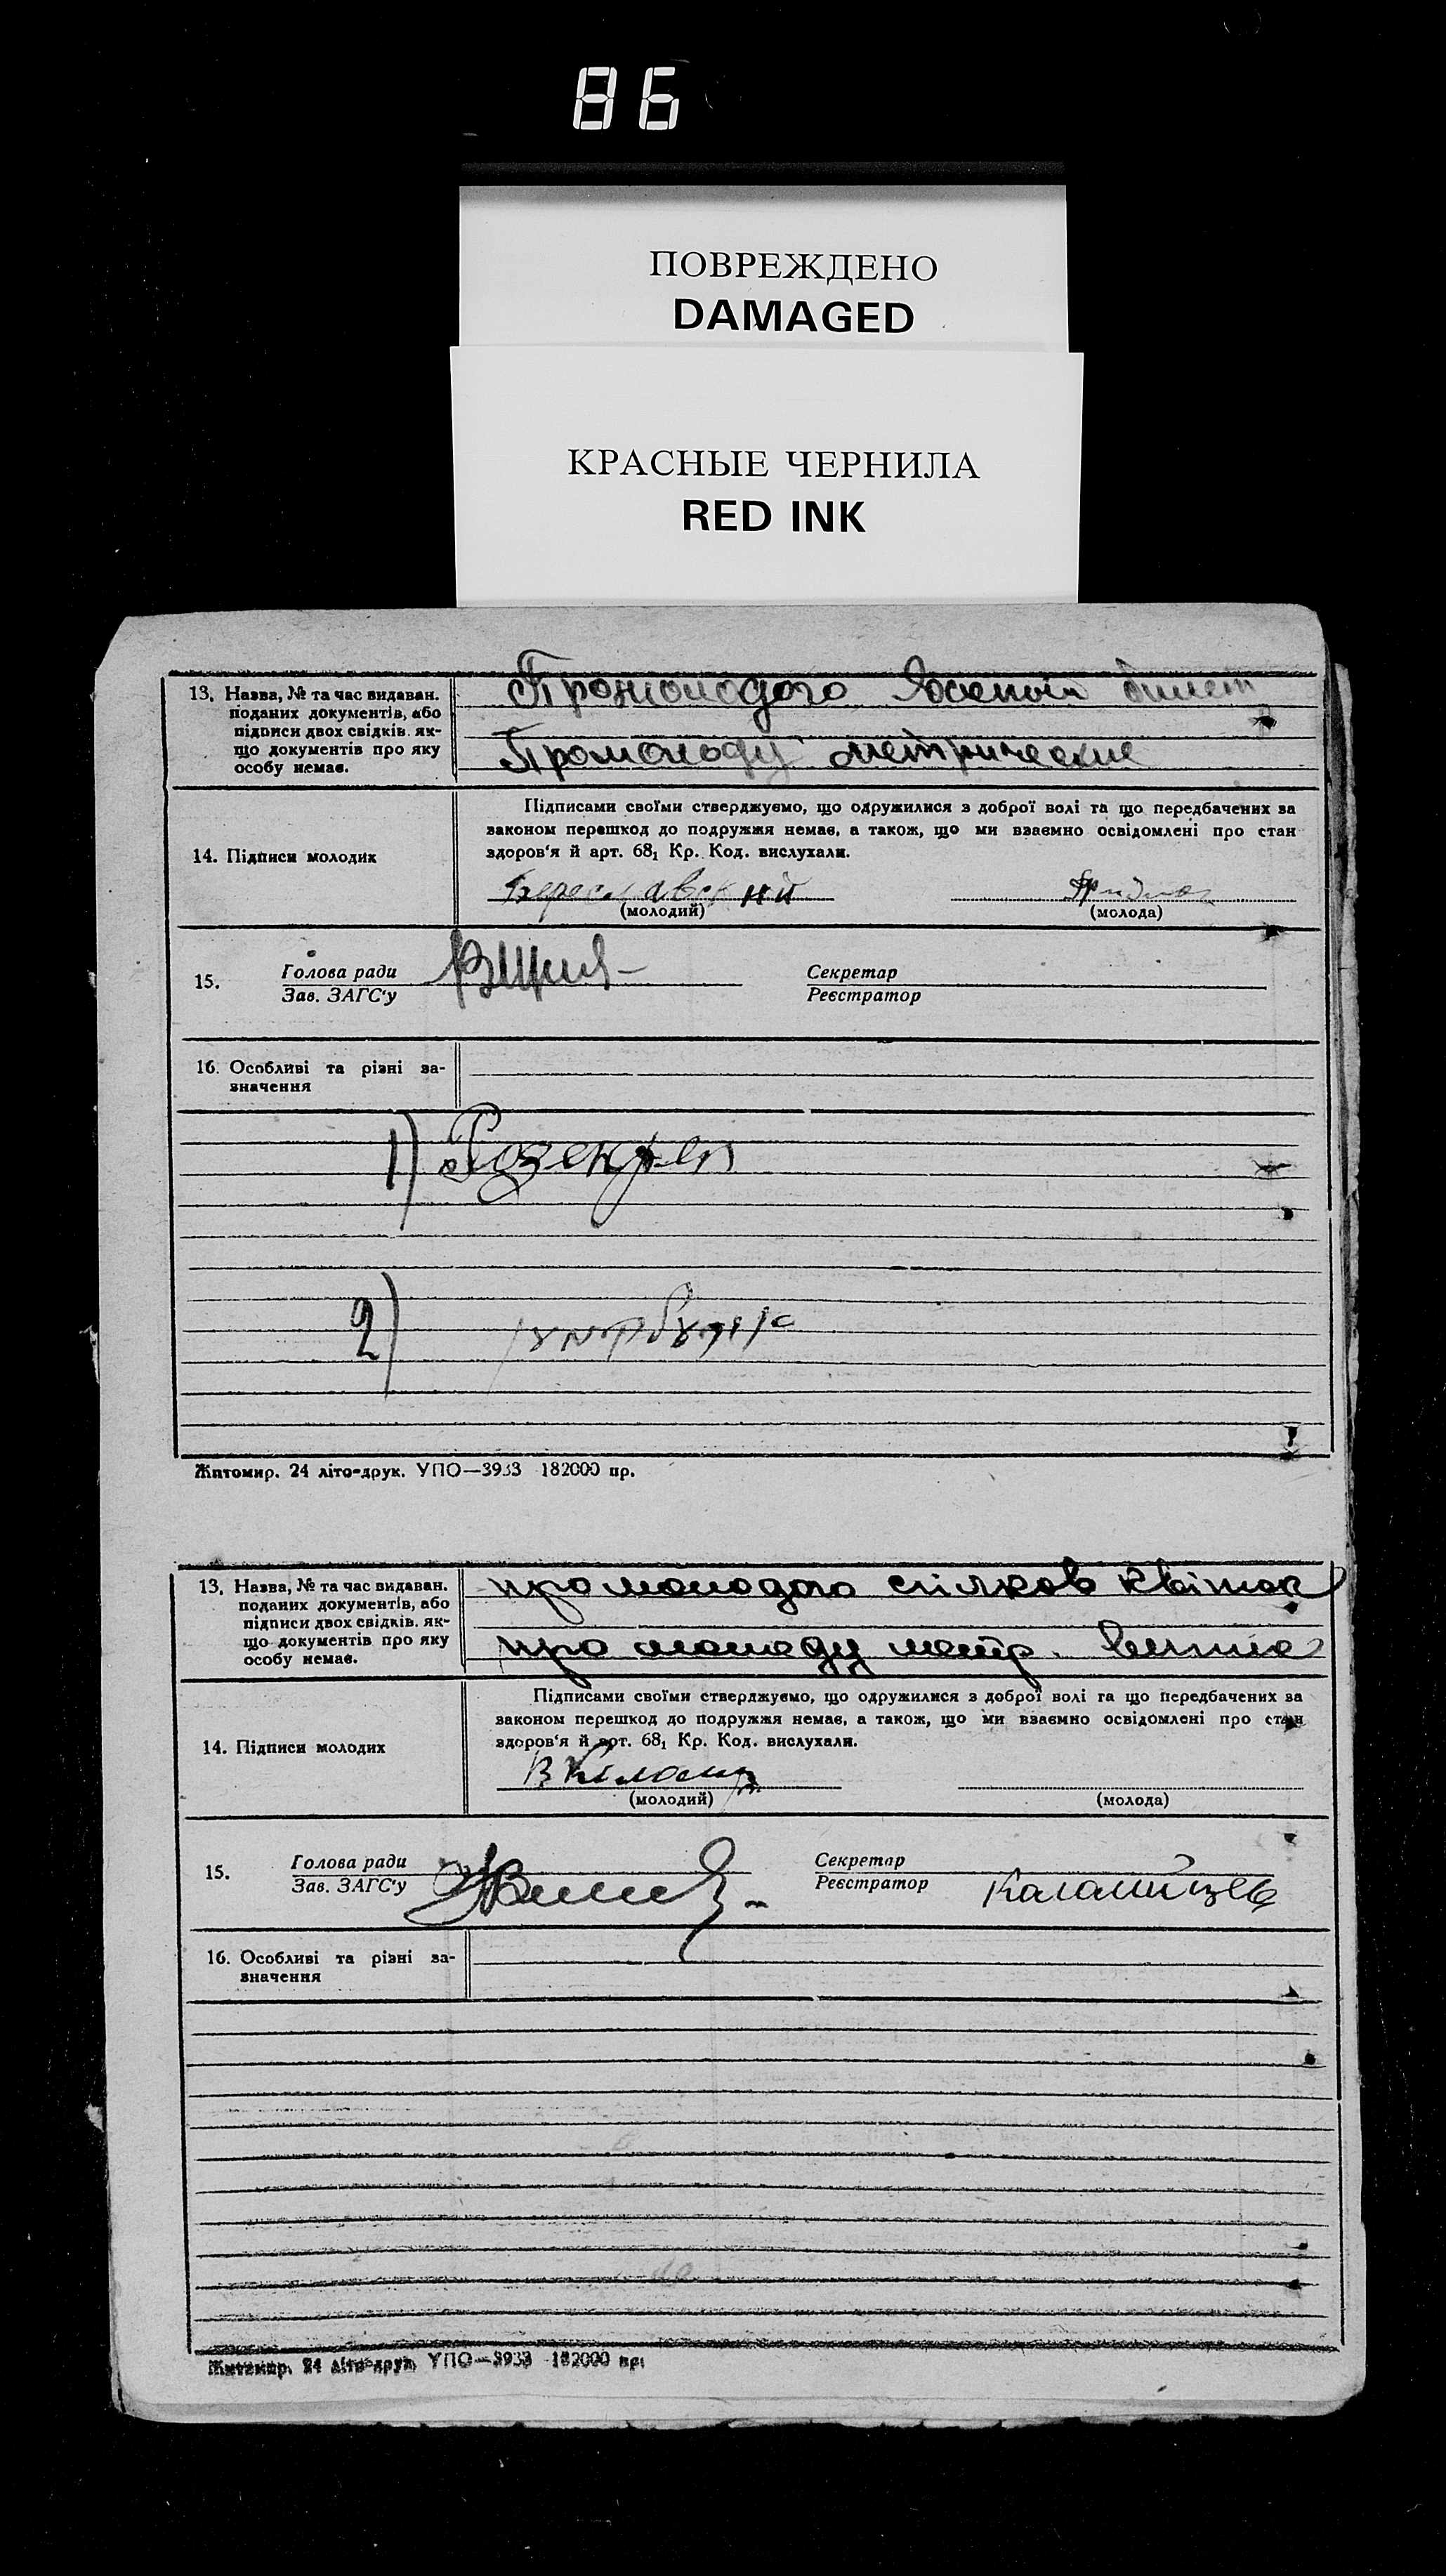 86
ПОВРЕЖДЕНО
DAMAGED
КРАСНЫЕ ЧЕРНИЛА
RED INK
13. Назва, № та час видаван.
поданих документів, або
підписи двох свідків. як-
що документів про яку
особу немає.
Промолодого билет
Промолоду метрические
14. Підписи молодих
Підписами своїми стверджуємо, що одружилися з доброї волі та що передбачених за
законом перешкод до подружжя немає, а також, що ми взаємно освідомлені про стан
здоров'я й арт. 68₁ Кр. Код. вислухали.
Береславский
(молодий)
(молода)
15.
Голова ради
Зав. ЗАГС'у
Секретар
Реєстратор
16. Особливі та різні за-
значення
1) Розенфел
2)
Житомир. 24 літо-друк. УПО—3933 182000 пр.
13. Назва, № та час видаван.
поданих документів, або
підписи двох свідків. як-
що документів про яку
особу немає.
про молодого спілков квіток
про молоду метр. випис
14. Підписи молодих
Підписами своїми стверджуємо, що одружилися з доброї волі та що передбачених за
законом перешкод до подружжя немає, а також, що ми взаємно освідомлені про стан
здоров'я й арт. 68₁ Кр. Код. вислухали.
(молодий)
(молода)
15.
Голова ради
Зав. ЗАГС'у
Секретар
Реєстратор
16. Особливі та різні за-
значення
Житомир. 24 літо-друк. УПО—3933 182000 пр.